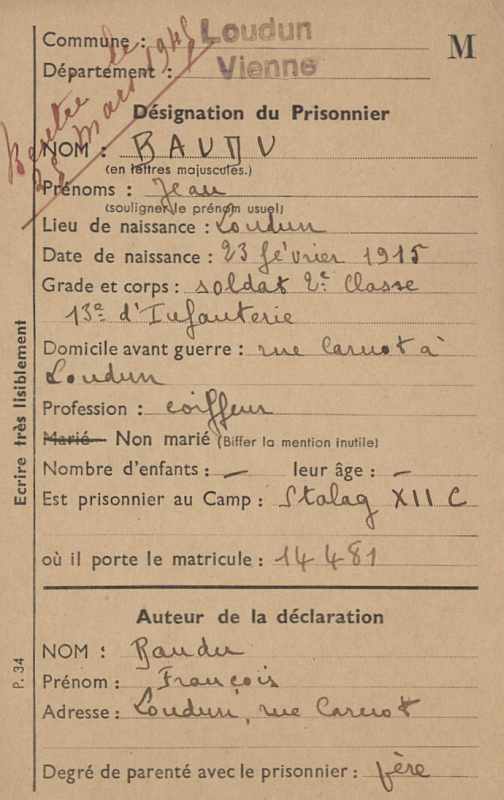 Commune : Loudun
M
Département : Vienne
le
Mars 1945
Désignation du Prisonnier
NOM : BAUDU
(en lettres majuscules.)
Prénoms : Jean
(souligner le prénom usuel)
Lieu de naissance : Loudun
Date de naissance : 23 février 1915
Grade et corps : soldat 2e Classe
13e d'Infanterie
Domicile avant guerre : rue Carnot à
Loudun
Profession : coiffeur
Marié - Non marié (Biffer la mention inutile)
Nombre d'enfants : — leur âge : —
Est prisonnier au Camp : Stalag XII C
où il porte le matricule : 14 481
Auteur de la déclaration
NOM : Baudu
Prénom : François
Adresse : Loudun, rue Carnot
Degré de parenté avec le prisonnier : père
Ecrire très lisiblement
P. 34